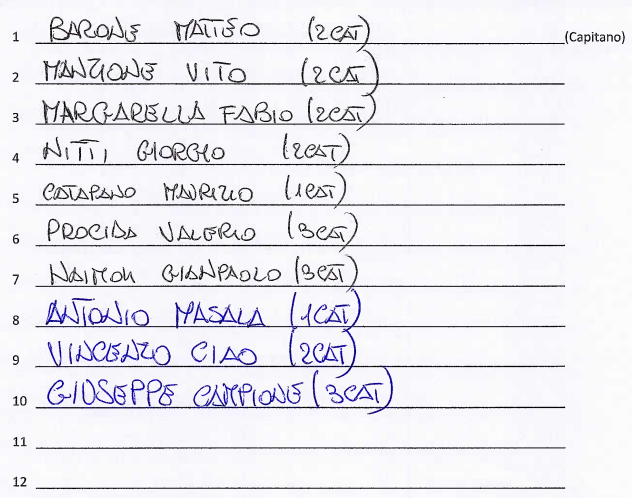 1 BARONE MATTEO (2CAT) (Capitano)
2 MANZIONE VITO (2CAT)
3 MARGARELLA FABIO (2CAT)
4 NITTI GIORGIO (2CAT)
5 CATAPANO MAURIZIO (1CAT)
6 PROCIDA VALERIO (3CAT)
7 NAIMOLI GIANPAOLO (3CAT)
8 ANTONIO MASALA (1CAT)
9 VINCENZO CIAO (2CAT)
10 GIUSEPPE CAMPIONE (3CAT)
11
12